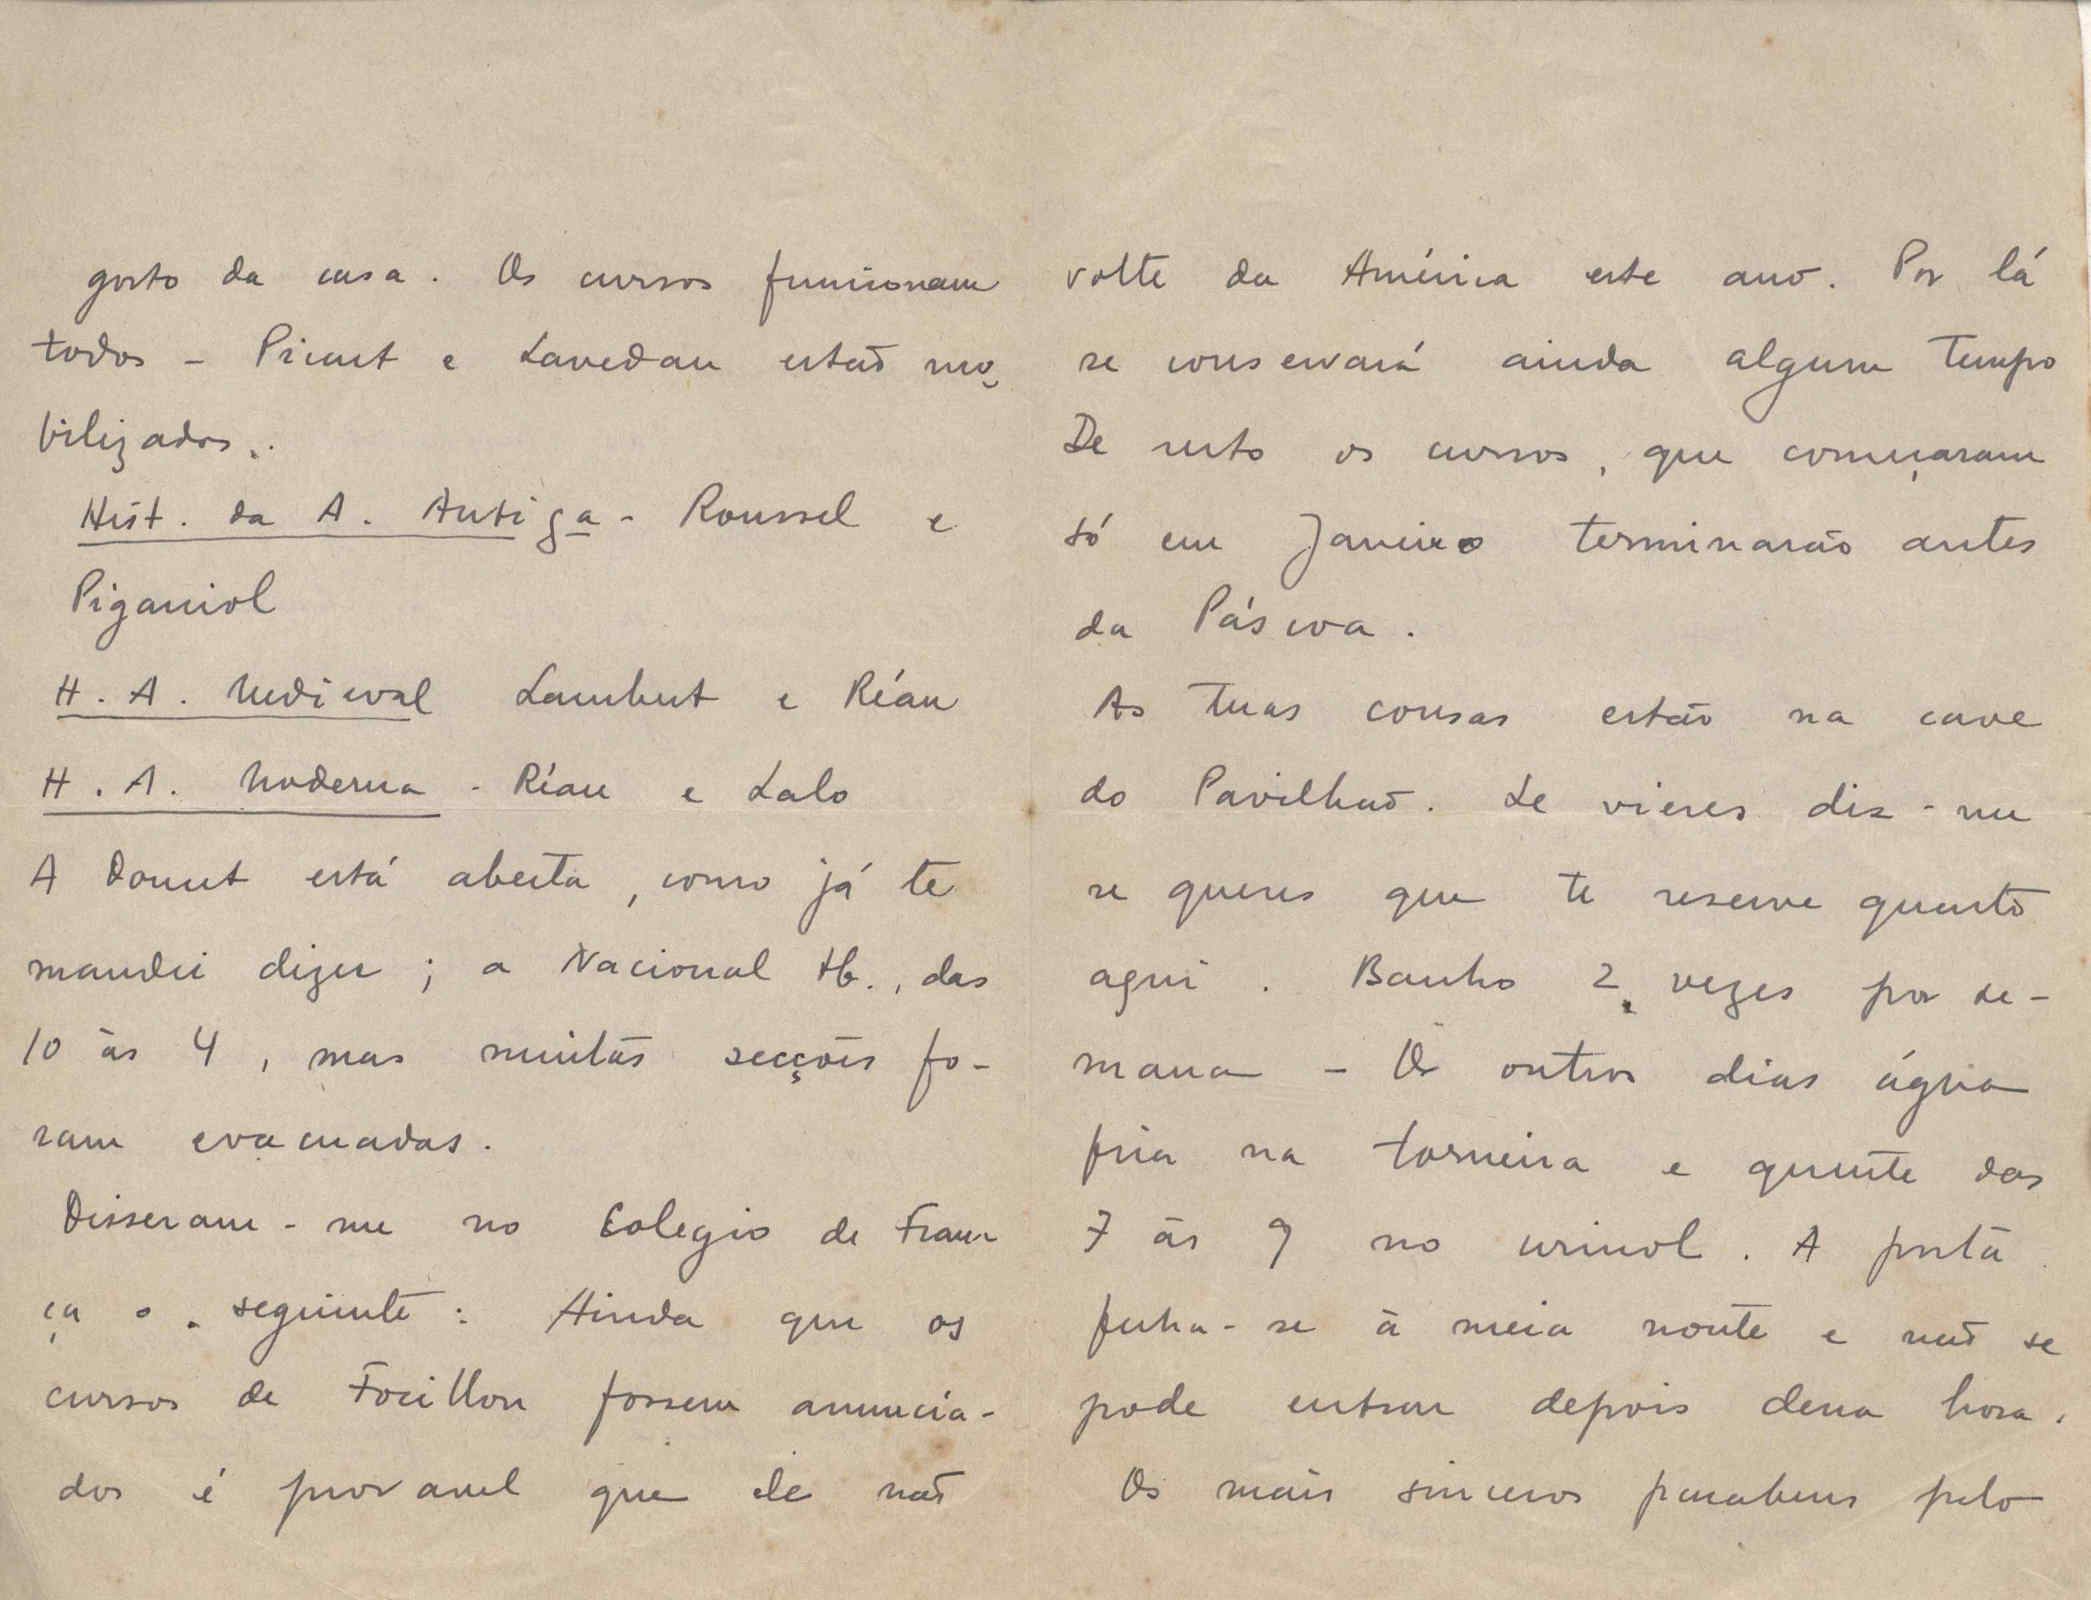 gosto da casa. Os cursos funcionam
todos - Picart e Lavedan estão mo-
bilizados.
Hist. da A. Antiga - Roussel e
Piganiol
H. A. Medieval Lambert e Réau
H. A. Moderna - Réau e Lalo
A Doucet está aberta, como já te
mandei dizer; a Nacional tb., das
10 às 4, mas muitas secções fo-
ram evacuadas.
Disseram-me no Colegio de Fran-
ça o seguinte: Ainda que os
cursos de Focillon fossem anuncia-
dos é provavel que ele não
volte da América este ano. Por lá
se conservará ainda algum tempo
De resto os cursos, que começaram
só em Janeiro terminarão antes
da Páscoa.
As tuas cousas estão na cave
do Pavilhão. Se vieres diz-me
se queres que te reserve quarto
aqui. Banho 2 vezes por se-
mana - Os outros dias água
fria na torneira e quente das
7 às 9 no urinol. A porta
fecha-se à meia noute e não se
pode entrar depois dessa hora.
Os mais sinceros parabens pelo